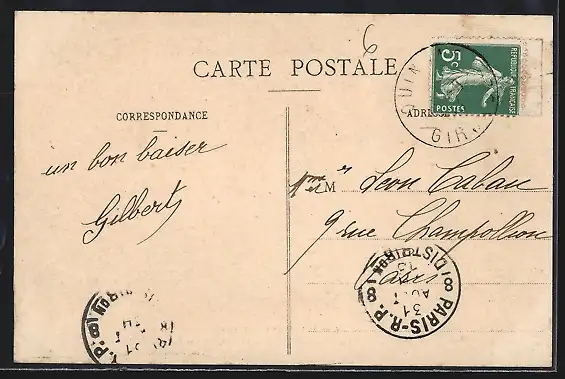 6
CARTE POSTALE
CORRESPONDANCE
ADRESSE
5c
REPUBLIQUE FRANÇAISE
POSTES
QUIN
GIR
un bon baiser
Gilbert
M
Leon
9 rue Champollion
Paris
8 PARIS-R.P. 8
DISTRIBON
31
AOUT